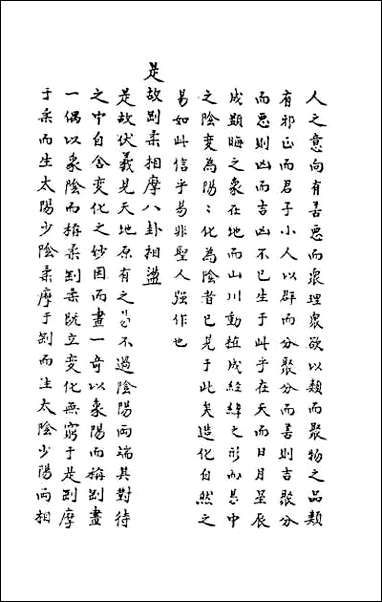 人之意向有善惡而衆理衆欲以類而聚物之品類
有邪正而君子小人以群而分聚分而善則吉聚分
而惡則凶而吉凶不已生于此乎在天而日月星辰
成顯晦之象在地而山川動植成經緯之形而其中
之陰變為陽〻化為陰昔已見于此矣造化自然之
易如此信乎易非聖人強作也
是故剛柔相摩八卦相盪
是故伏羲見天地原有之易不過陰陽兩端其對待
之中自含變化之妙因而畫一奇以象陽而稱剛畫
一偶以象陰而稱柔剛柔既立變化無窮于是剛摩
于柔而生太陽少陰柔摩于剛而生太陰少陽兩相